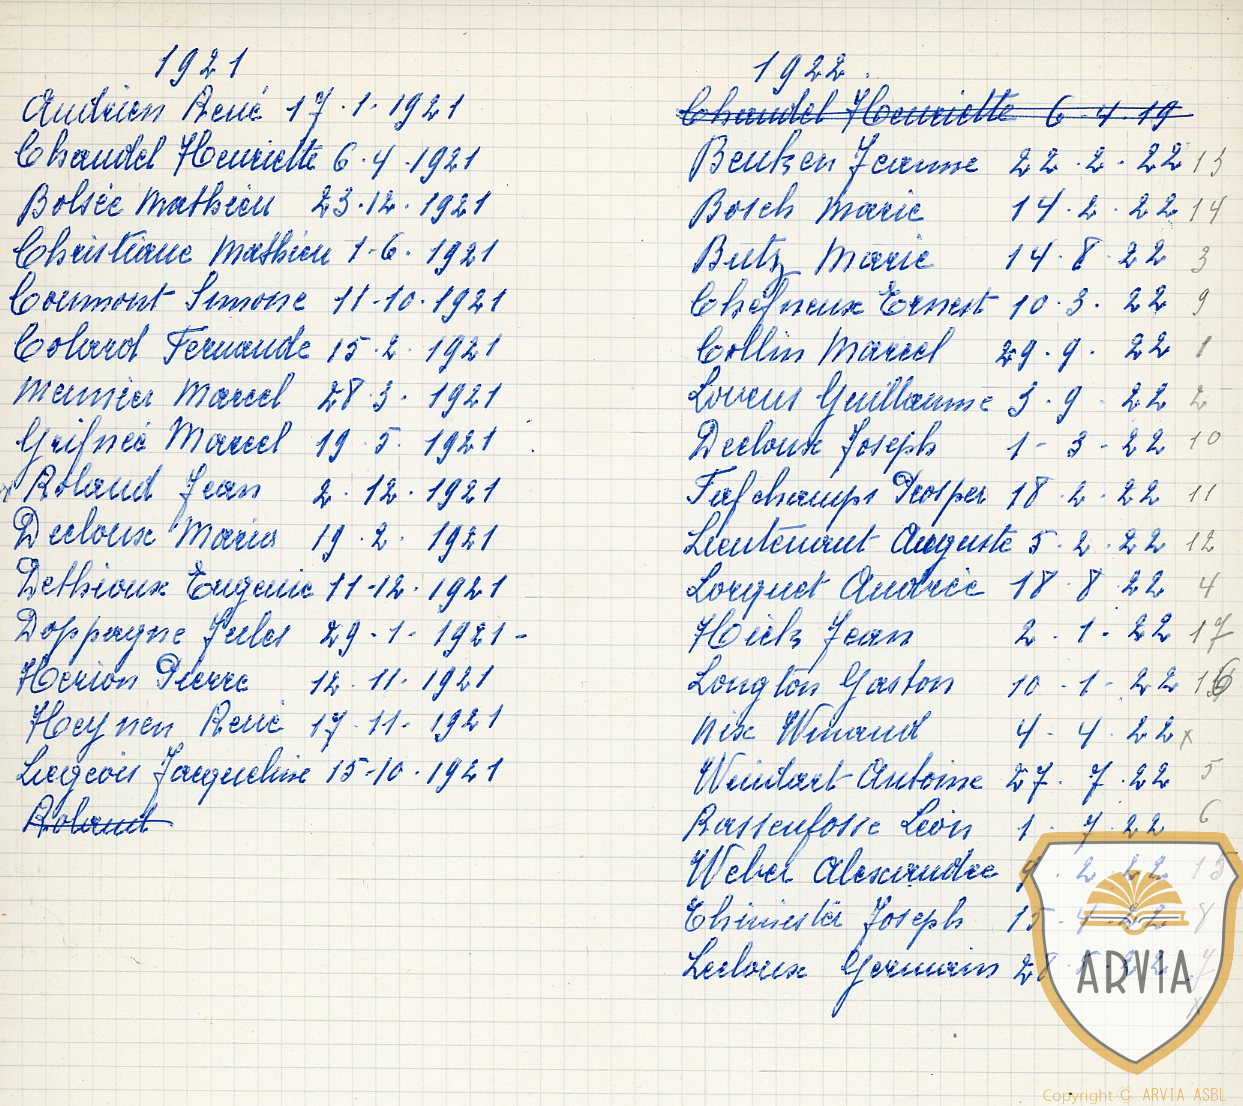 1921
Andrien René 17.1.1921
Chandel Henriette 6.4.1921
Bolsée Mathieu 23.12.1921
Christiane Mathieu 1-6.1921
Coumont Simone 11-10.1921
Colard Fernande 15.2.1921
Meunier Marcel 28.3.1921
Grifneé Marcel 19.5.1921
Roland Jean 2.12.1921
Decloux Maria 19.2.1921
Dethioux Eugenie 11-12.1921
Doppagne Jules 29.1.1921-
Herion Pierre 12.11.1921
Heynen René 17.11-1921
Liegeois Jacqueline 15-10.1921
Roland
1922
Chandel Henriette 6.4.19
Beuken Jeanne 22.2.22 13
Bosch Marie 14.2.22 14
Butz Marie 14.8.22 3
Chefneux Ernest 10.3.22 9
Collin Marcel 29.9.22 1
Lovens Guillaume 3.9.22 2
Decloux Joseph 1-3-22 10
Fafchamps Prosper 18.2.22 11
Lieutenant Auguste 5.2.22 12
Lorquet Andrée 18.8.22 4
Hick Jean 2.1.22 17
Longton Gaston 10-1-22 16
Nix Winand 4-4.22 x
Weintart Antoine 27.7.22 5
Rassenfosse Léon 1.7.22 6
Weber Alexandre 9.2.22 15
Thimister Joseph 15.4.22 8
Lecloux Germain 28.5.22 7
x
ARVIA
Copyright © ARVIA ASBL